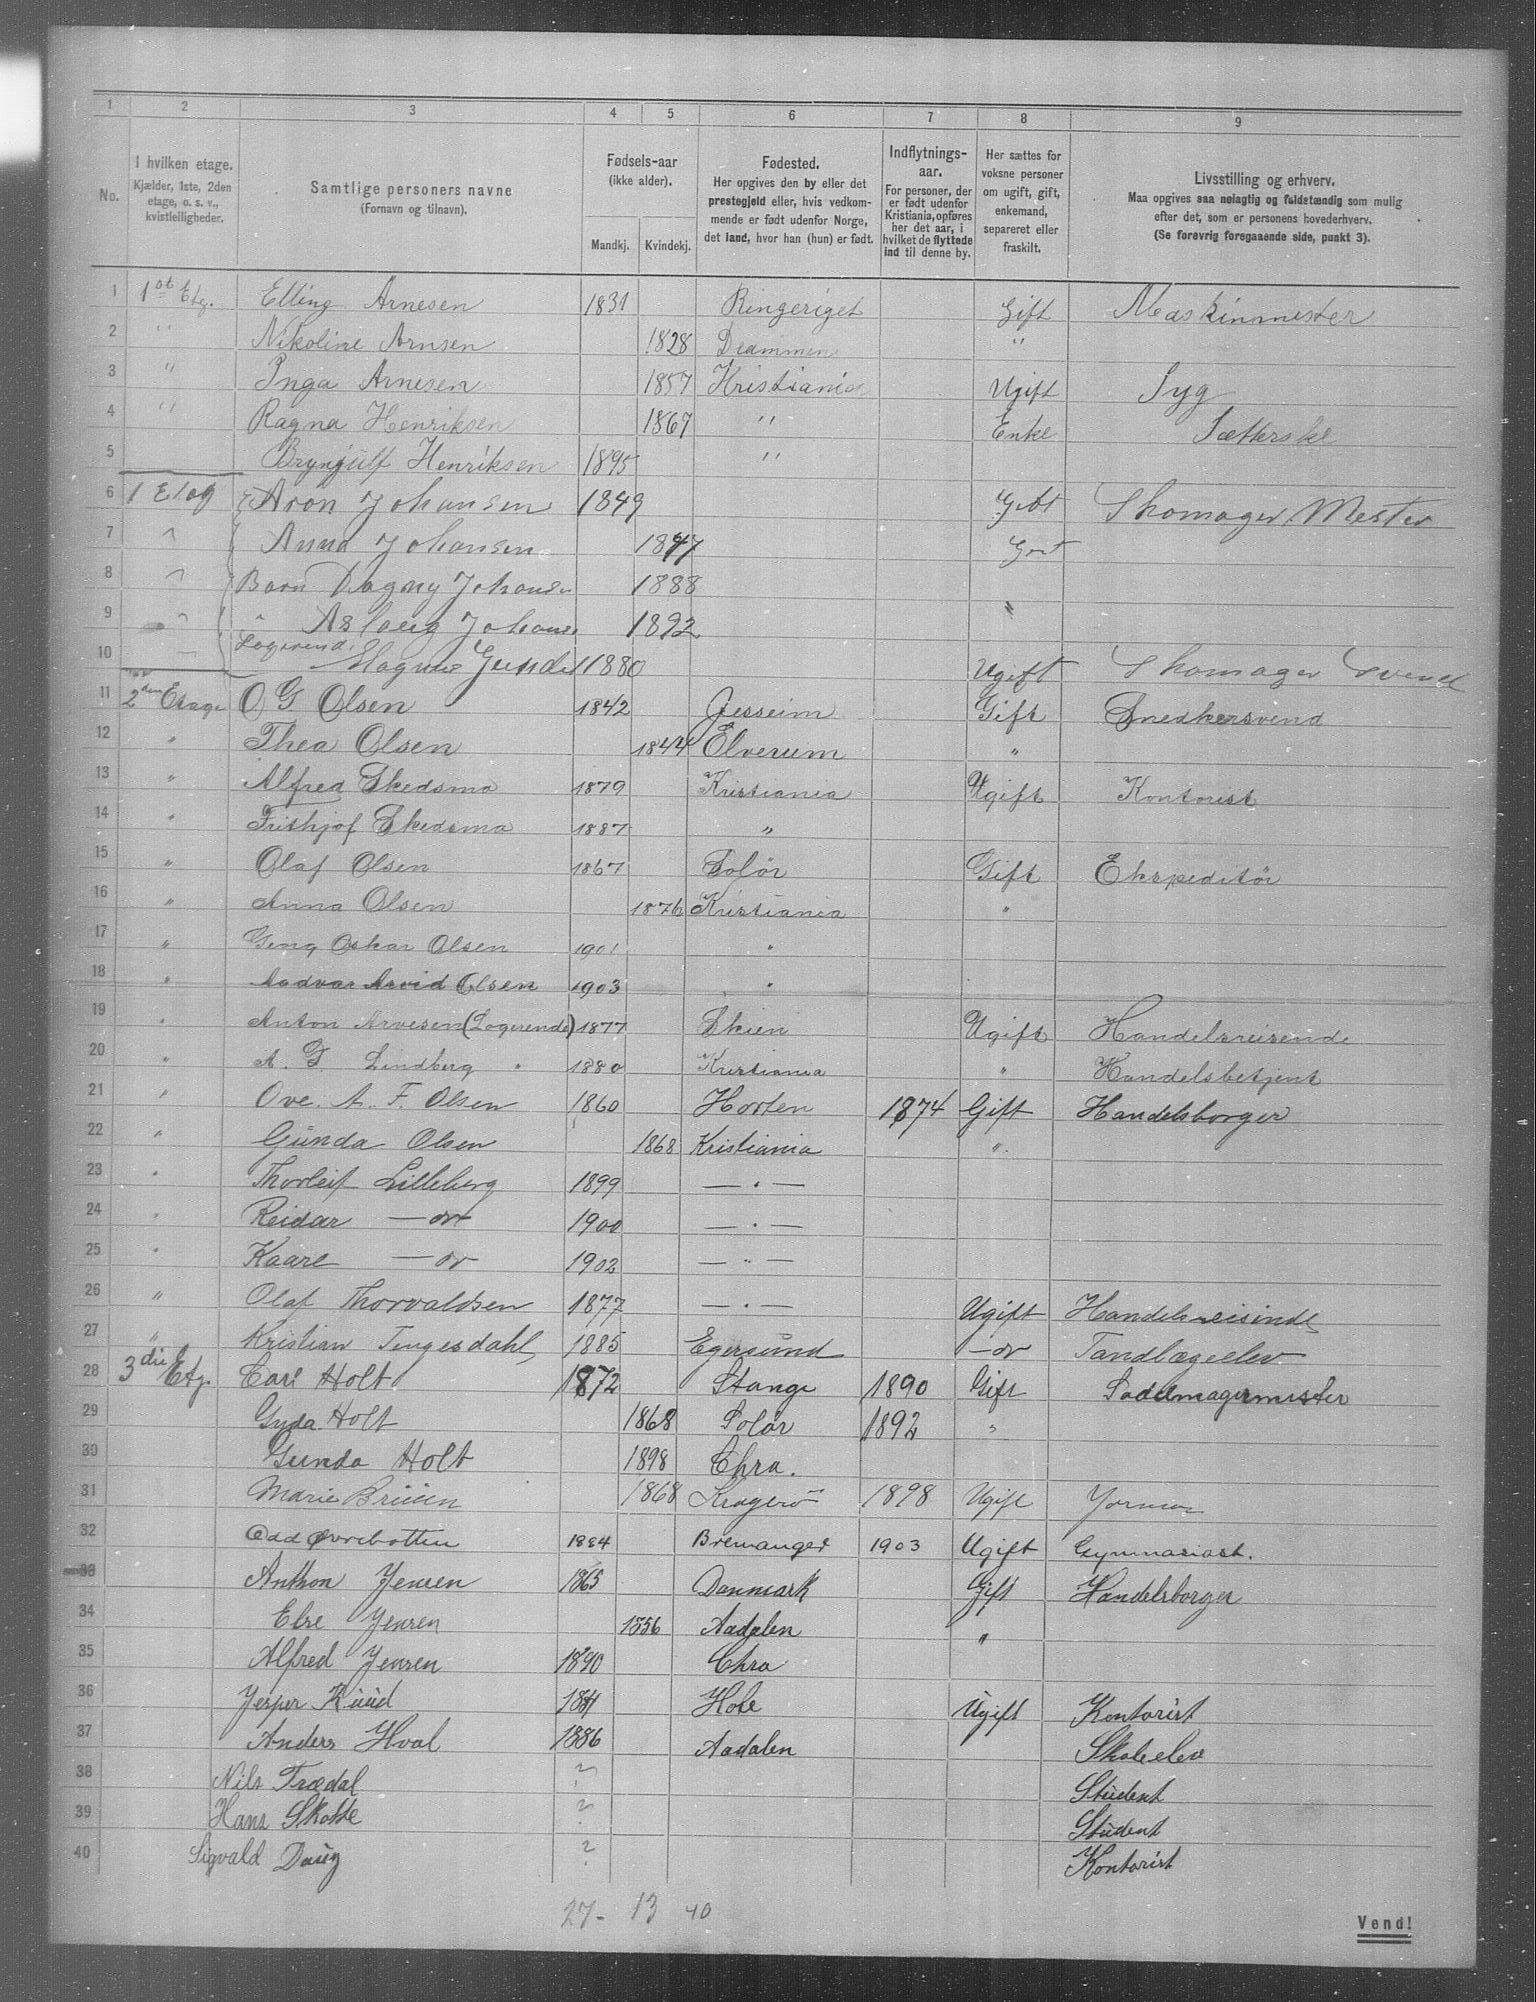 1 2 3 4 5 6 7 8 9
No.
I hvilken etage. Kjælder, 1ste, 2den etage, o. s. v., kvistleiligheder.
Samtlige personers navne (Fornavn og tilnavn).
Fødsels-aar (ikke alder).
Mandkj. Kvindekj.
Fødested. Her opgives den by eller det prestegjeld eller, hvis vedkommende er født udenfor Norge, det land, hvor han (hun) er født.
Indflytnings-aar. For personer, der er født udenfor Kristiania, opføres her det aar, i hvilket de flyttede ind til denne by.
Her sættes for voksne personer om ugift, gift, enkemand, separeret eller fraskilt.
Livsstilling og erhverv. Maa opgives saa nøiagtig og fuldstændig som mulig efter det, som er personens hovederhverv. (Se forøvrig foregaaende side, punkt 3).
1 1st Etg. Elling Arnesen 1831 Ringeriget Gift Maskinmester
2 " Nikoline Arnsen 1828 Drammen "
3 " Inga Arnesen 1857 Kristiania Ugift Syg
4 " Ragna Henriksen 1867 " Enke Sætterske
5 Brynjulf Henriksen 1895 "
6 1 Etag Aron Johansen 1849 Gift Skomager Mester
7 " Anna Johansen 1847 Gift
8 " Barn Dagny Johansen 1888
9 " " Aslaug Johans 1892 "
10 " Logerend. Magnus 1880 Ugift Skomager Svend
11 2den Etage O G Olsen 1842 Jesseim Gift Snedkersvend
12 " Thea Olsen 1844 Elverum "
13 " Alfred Skedsmo 1879 Kristiania Ugift Kontorist
14 " Frithjof Skedsmo 1887 "
15 " Olaf Olsen 1867 Solør Gift Ekspeditør
16 " Anna Olsen 1876 Kristiania "
17 " Georg Oskar Olsen 1901 "
18 " Aadvar Arvid Olsen 1903 "
19 " Anton Arvesen (Logerende) 1877 Skien Ugift Handelsreisende
20 " A. Lindberg " 1880 Kristiania " Handelsbetjent
21 " Ove. A. F. Olsen 1860 Horten 1874 Gift Handelsborger
22 " Gunda Olsen 1868 Kristiania "
23 " Thorleif Lilleberg 1899 — " —
24 " Reidar — " — 1900 — " —
25 " Kaare — " — 1902 — " —
26 " Olaf Thorvaldsen 1877 — " — Ugift Handelsreisende
27 " Kristian Tengesdahl, 1885 Egersund — " Tandlægeelev
28 3die Etg. Carl Holt 1872 Stange 1890 Gift Sadelmagermester
29 Gyda Holt 1868 Solør 1892 "
30 Gunda Holt 1898 Chra.
31 Marie 1868 Kragerø 1898 Ugift
32 Odd Øvrebotten 1884 Bremanger 1903 Ugift Gymnasiast.
33 Anthon Jensen 1865 Danmark Gift Handelsborger
34 Else Jensen 1856 Aadalen "
35 Alfred Jensen 1890 Chra
36 Jesper Ruud 1881 Hole Ugift Kontorist
37 Anders Hval 1886 Aadalen Skoleelev
38 Nils Trædal ? Student
39 Hans Skotte ? Student
40 Sigvald ? Kontorist
27 - 13 40
Vend!